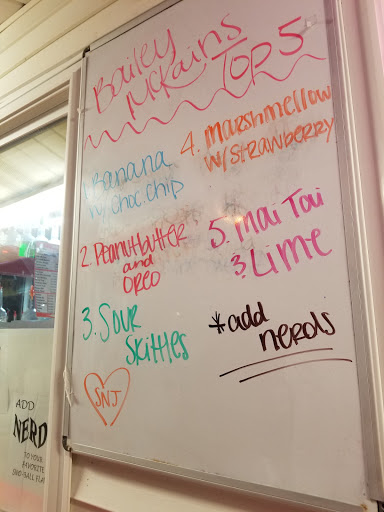 Bailey
McKains
Top 5
1. Banana
w/ choc. chip
2. Peanutbutter
and
oreo
3. Sour
Skittles
SNJ
4. marshmellow
w/ strawberry
5. mai Tai
& Lime
*add
nerds
ADD
NERD
TO YOUR
FAVORITE
SNO-BALL FLA